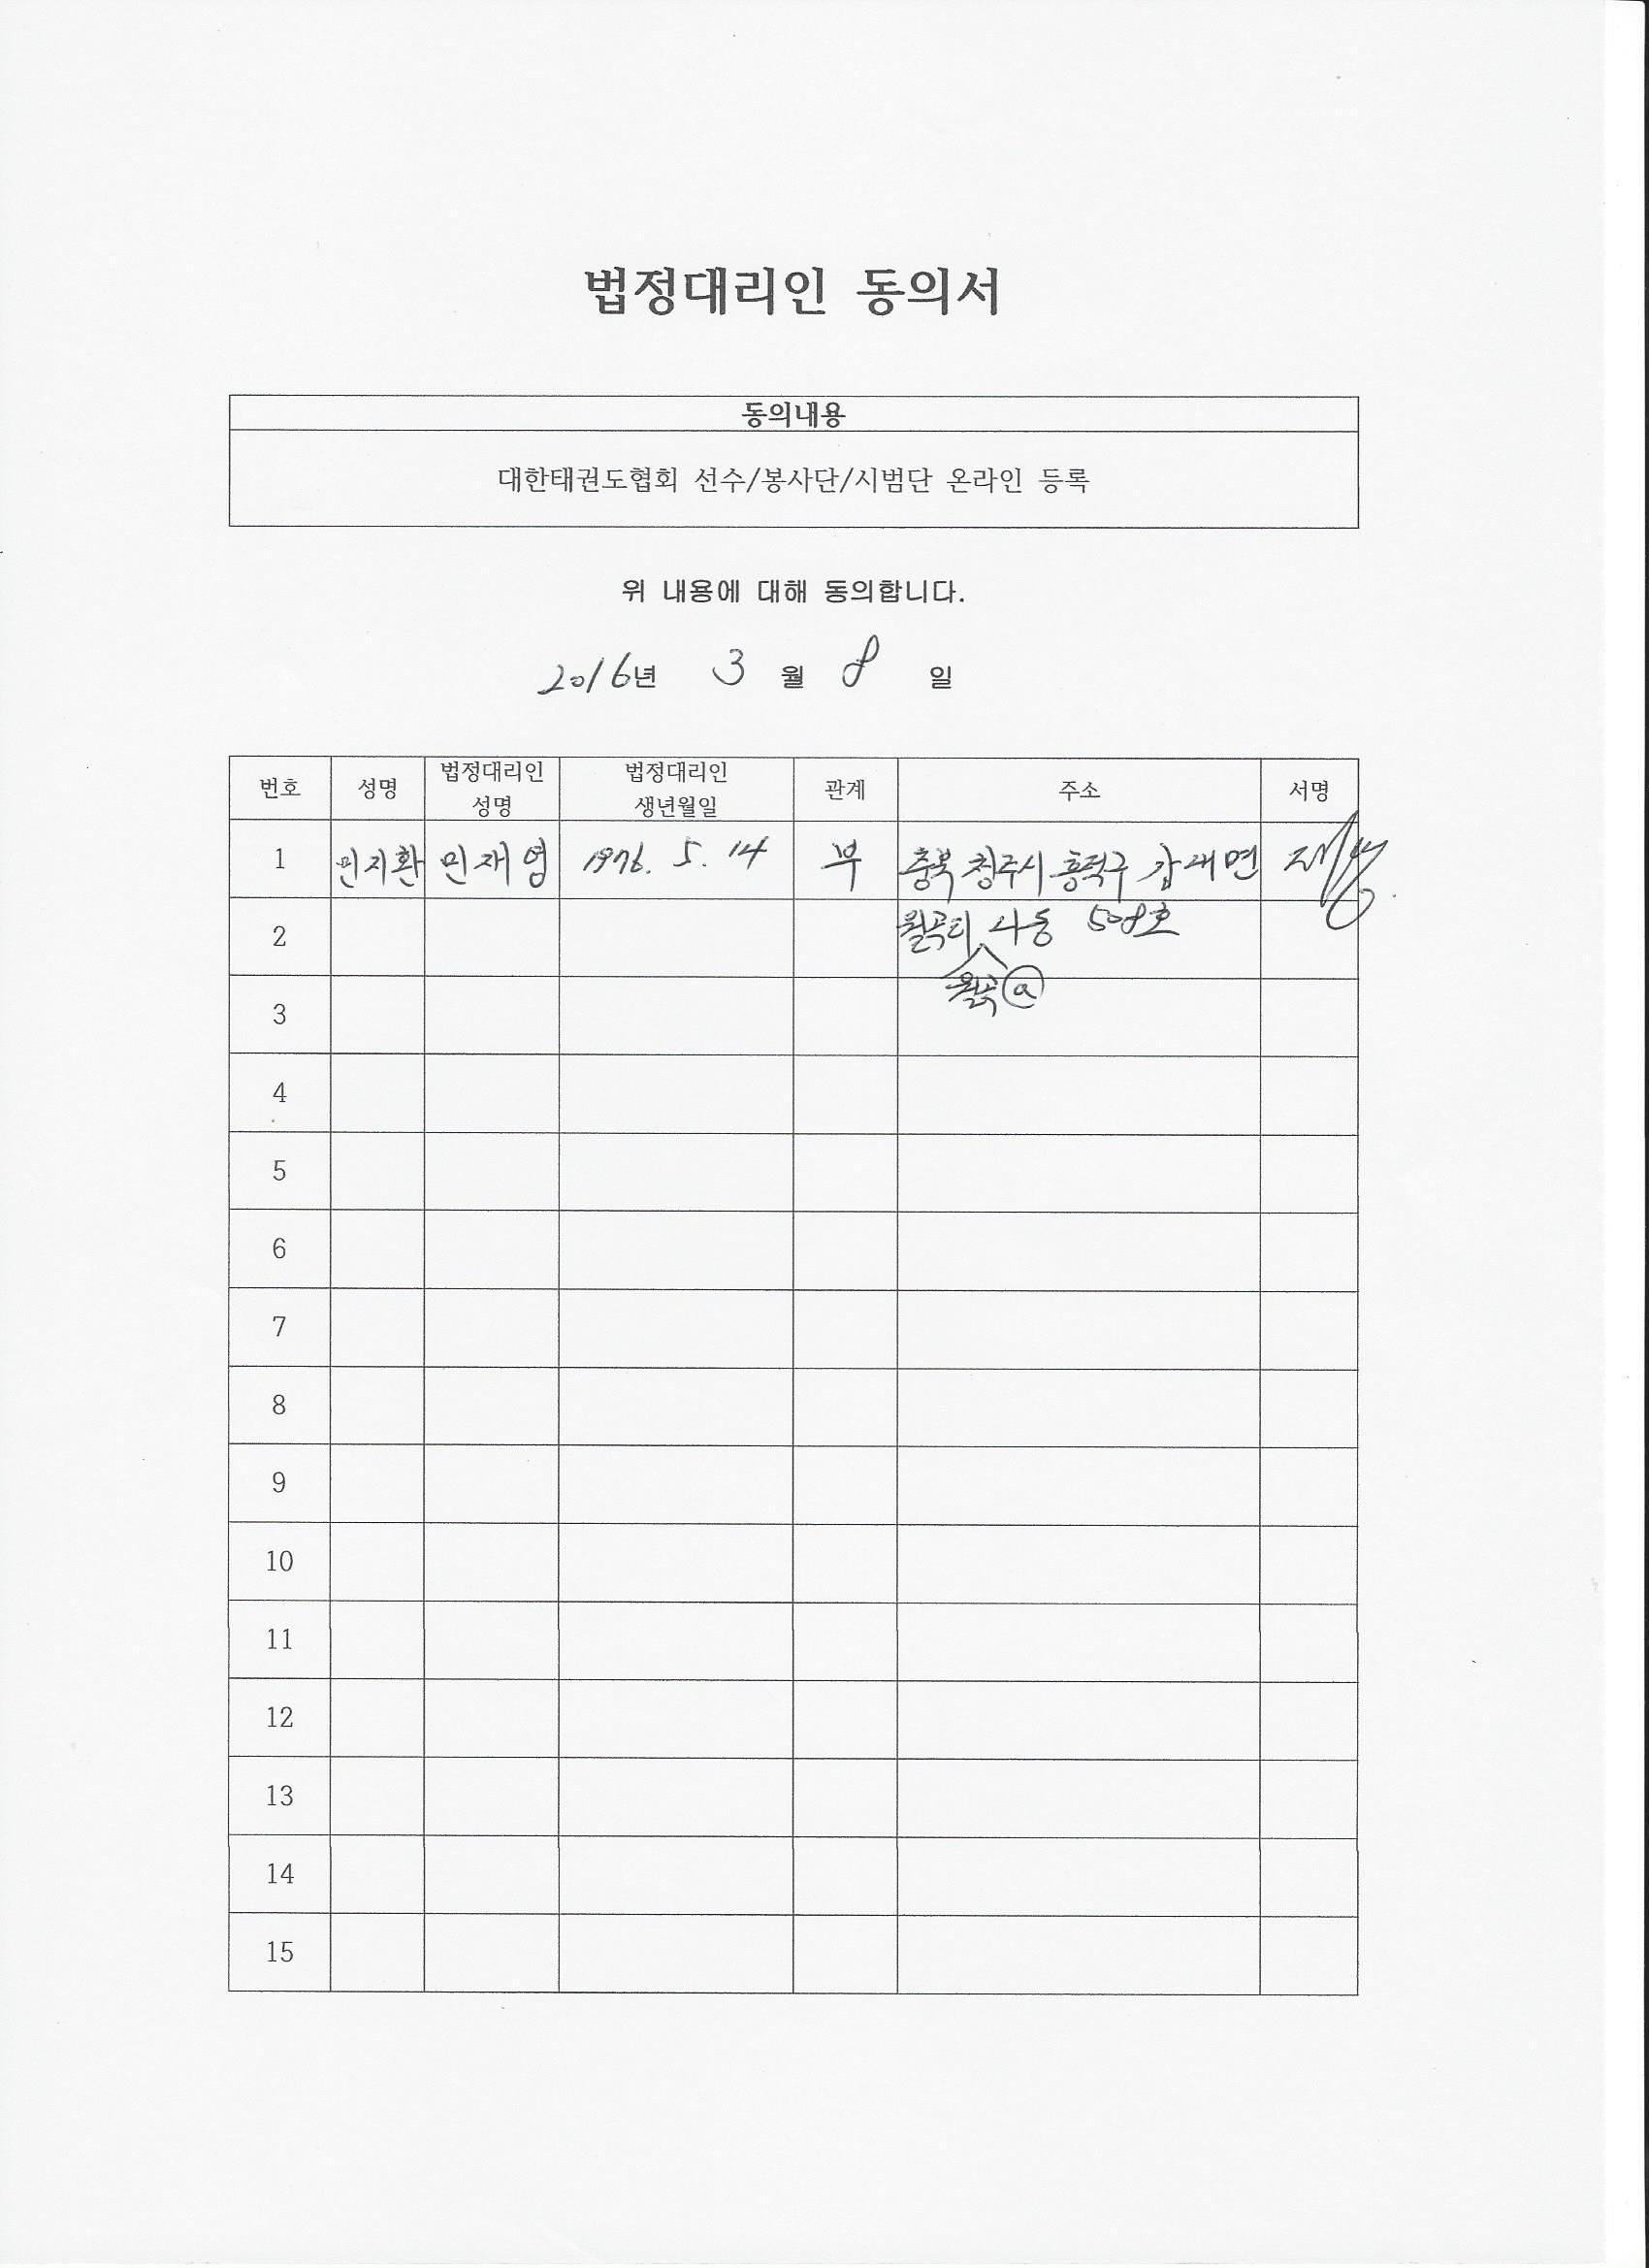 법정대리인 동의서
동의내용
대한태권도협회 선수/봉사단/시범단 온라인 등록
위 내용에 대해 동의합니다.
2016년 3 월 8 일
번호 성명 법정대리인 성명 법정대리인 생년월일 관계 주소 서명
1 민지환 민재영 1976. 5. 14 부 충북 청주시 흥덕구 강내면
2 월곡리 나동 508호
월곡 ⓐ
3
4
5
6
7
8
9
10
11
12
13
14
15